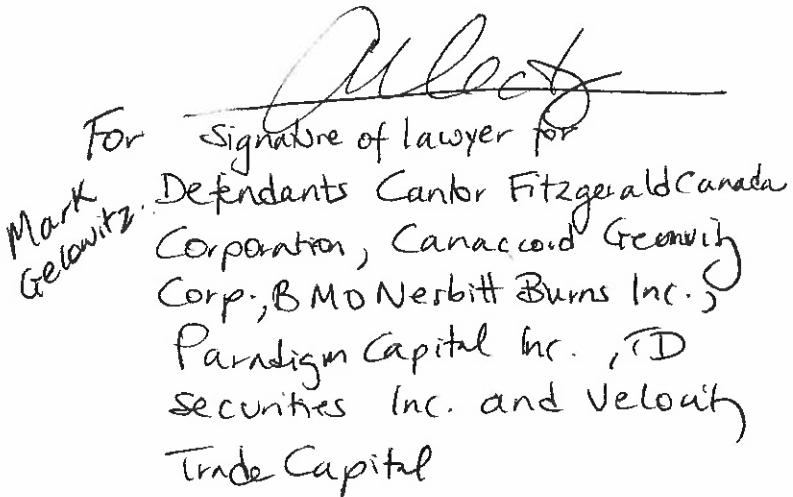 For Signature of lawyer for
Mark Gelowitz. Defendants Cantor Fitzgerald Canada
Corporation, Canaccord Genuity
Corp., BMO Nesbitt Burns Inc.,
Paradigm Capital Inc., TD
securities Inc. and Velocity
Trade Capital